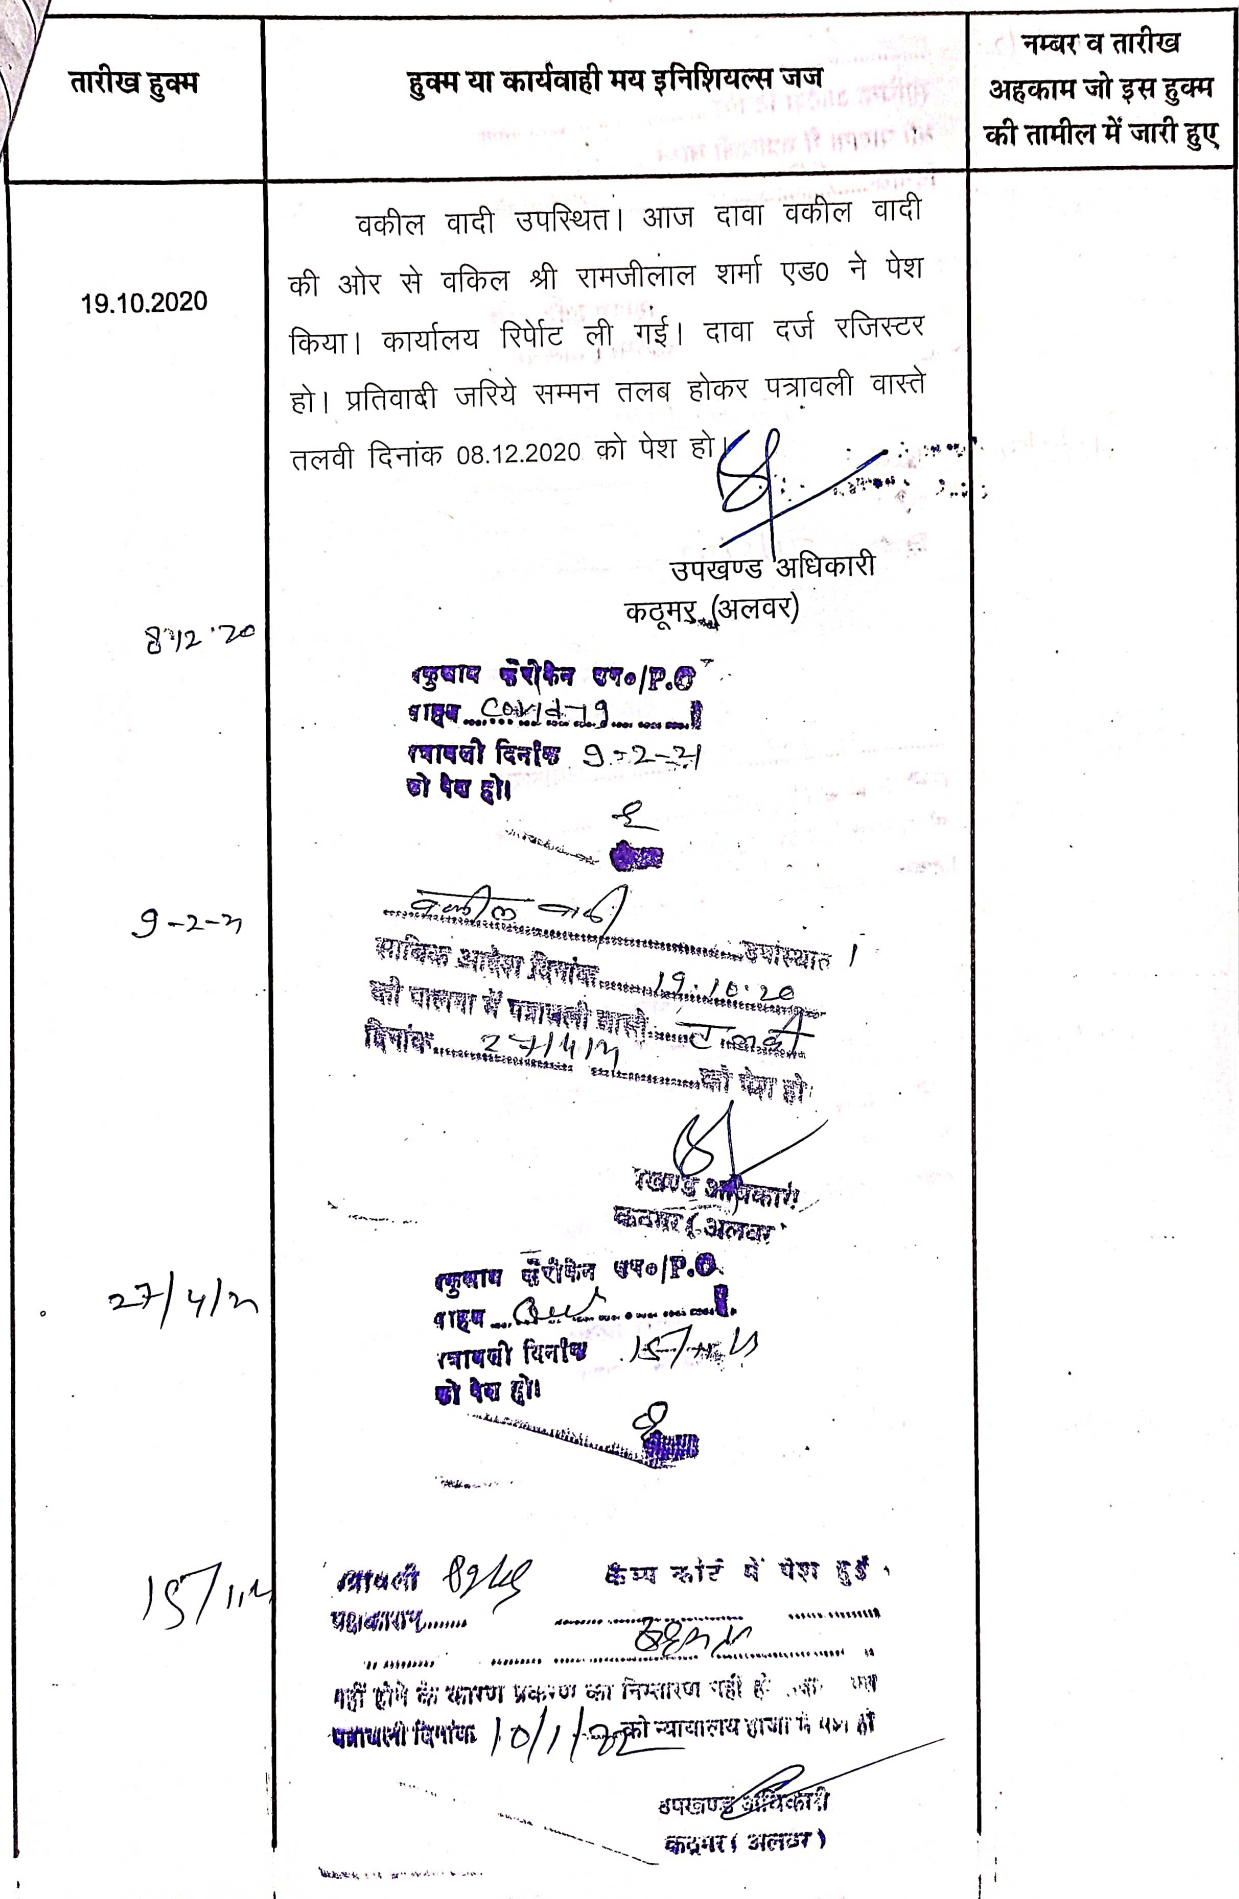 तारीख हुक्म
हुक्म या कार्यवाही मय इनिशियल्स जज
नम्बर व तारीख
अहकाम जो इस हुक्म
की तामील में जारी हुए
19.10.2020
वकील वादी उपस्थित। आज दावा वकील वादी
की ओर से वकिल श्री रामजीलाल शर्मा एड0 ने पेश
किया। कार्यालय रिर्पोट ली गई। दावा दर्ज रजिस्टर
हो। प्रतिवादी जरिये सम्मन तलब होकर पत्रावली वास्ते
तलवी दिनांक 08.12.2020 को पेश हो।
उपखण्ड अधिकारी
कठूमर (अलवर)
8.12.20
/P.O
Covid-19
दिनांक 9-2-21
को पेश हो।
9-2-21
वकील वादी उपस्थित।
साबिक आदेश दिनांक 19.10.20
की पालना में पत्रावली वास्ते तलवी
दिनांक 27/4/21 को पेश हो
खण्ड अधिकारी
कठूमर (अलवर
27/4/21
/P.O.
दिनांक
को पेश हो।
पत्रावली कैम्प कोर्ट में पेश हुई
पक्षकारान
नहीं होने के कारण प्रकरण का निस्तारण नहीं
पत्रावली दिनांक 10/1/22 को न्यायालय हाजा में पेश हो
उपखण्ड अधिकारी
कठूमर (अलवर)